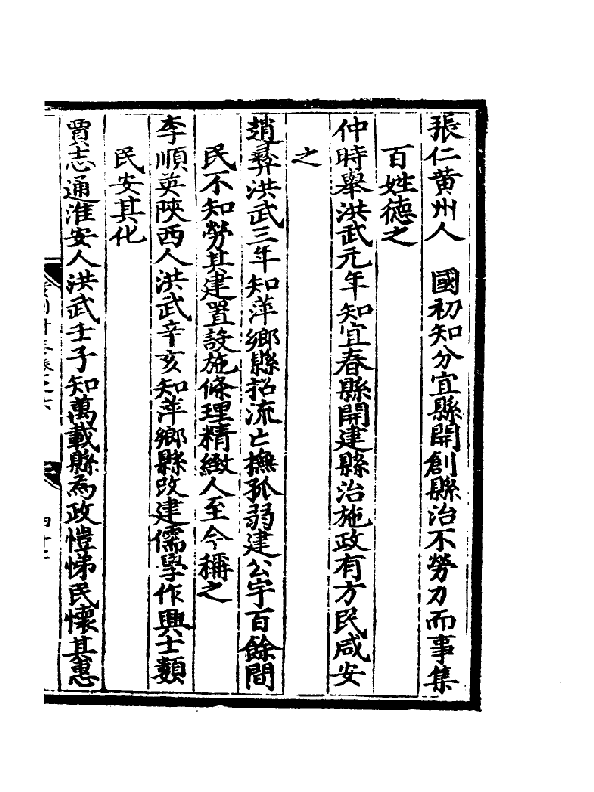 張仁黄州人　國初知分宜縣開創縣治不勞力而事集
百姓德之
仲時舉洪武元年知宜春縣開建縣治施政有方民咸安
之
趙彛洪武三年知萍鄉縣招流亡撫孤弱建公宇百餘間
民不知勞其建置設施條理精緻人至今稱之
李順英陜西人洪武辛亥知萍鄉縣改建儒學作興士類
民安其化
賈志通淮安人洪武壬子知萬載縣為政愷悌民懷其惠